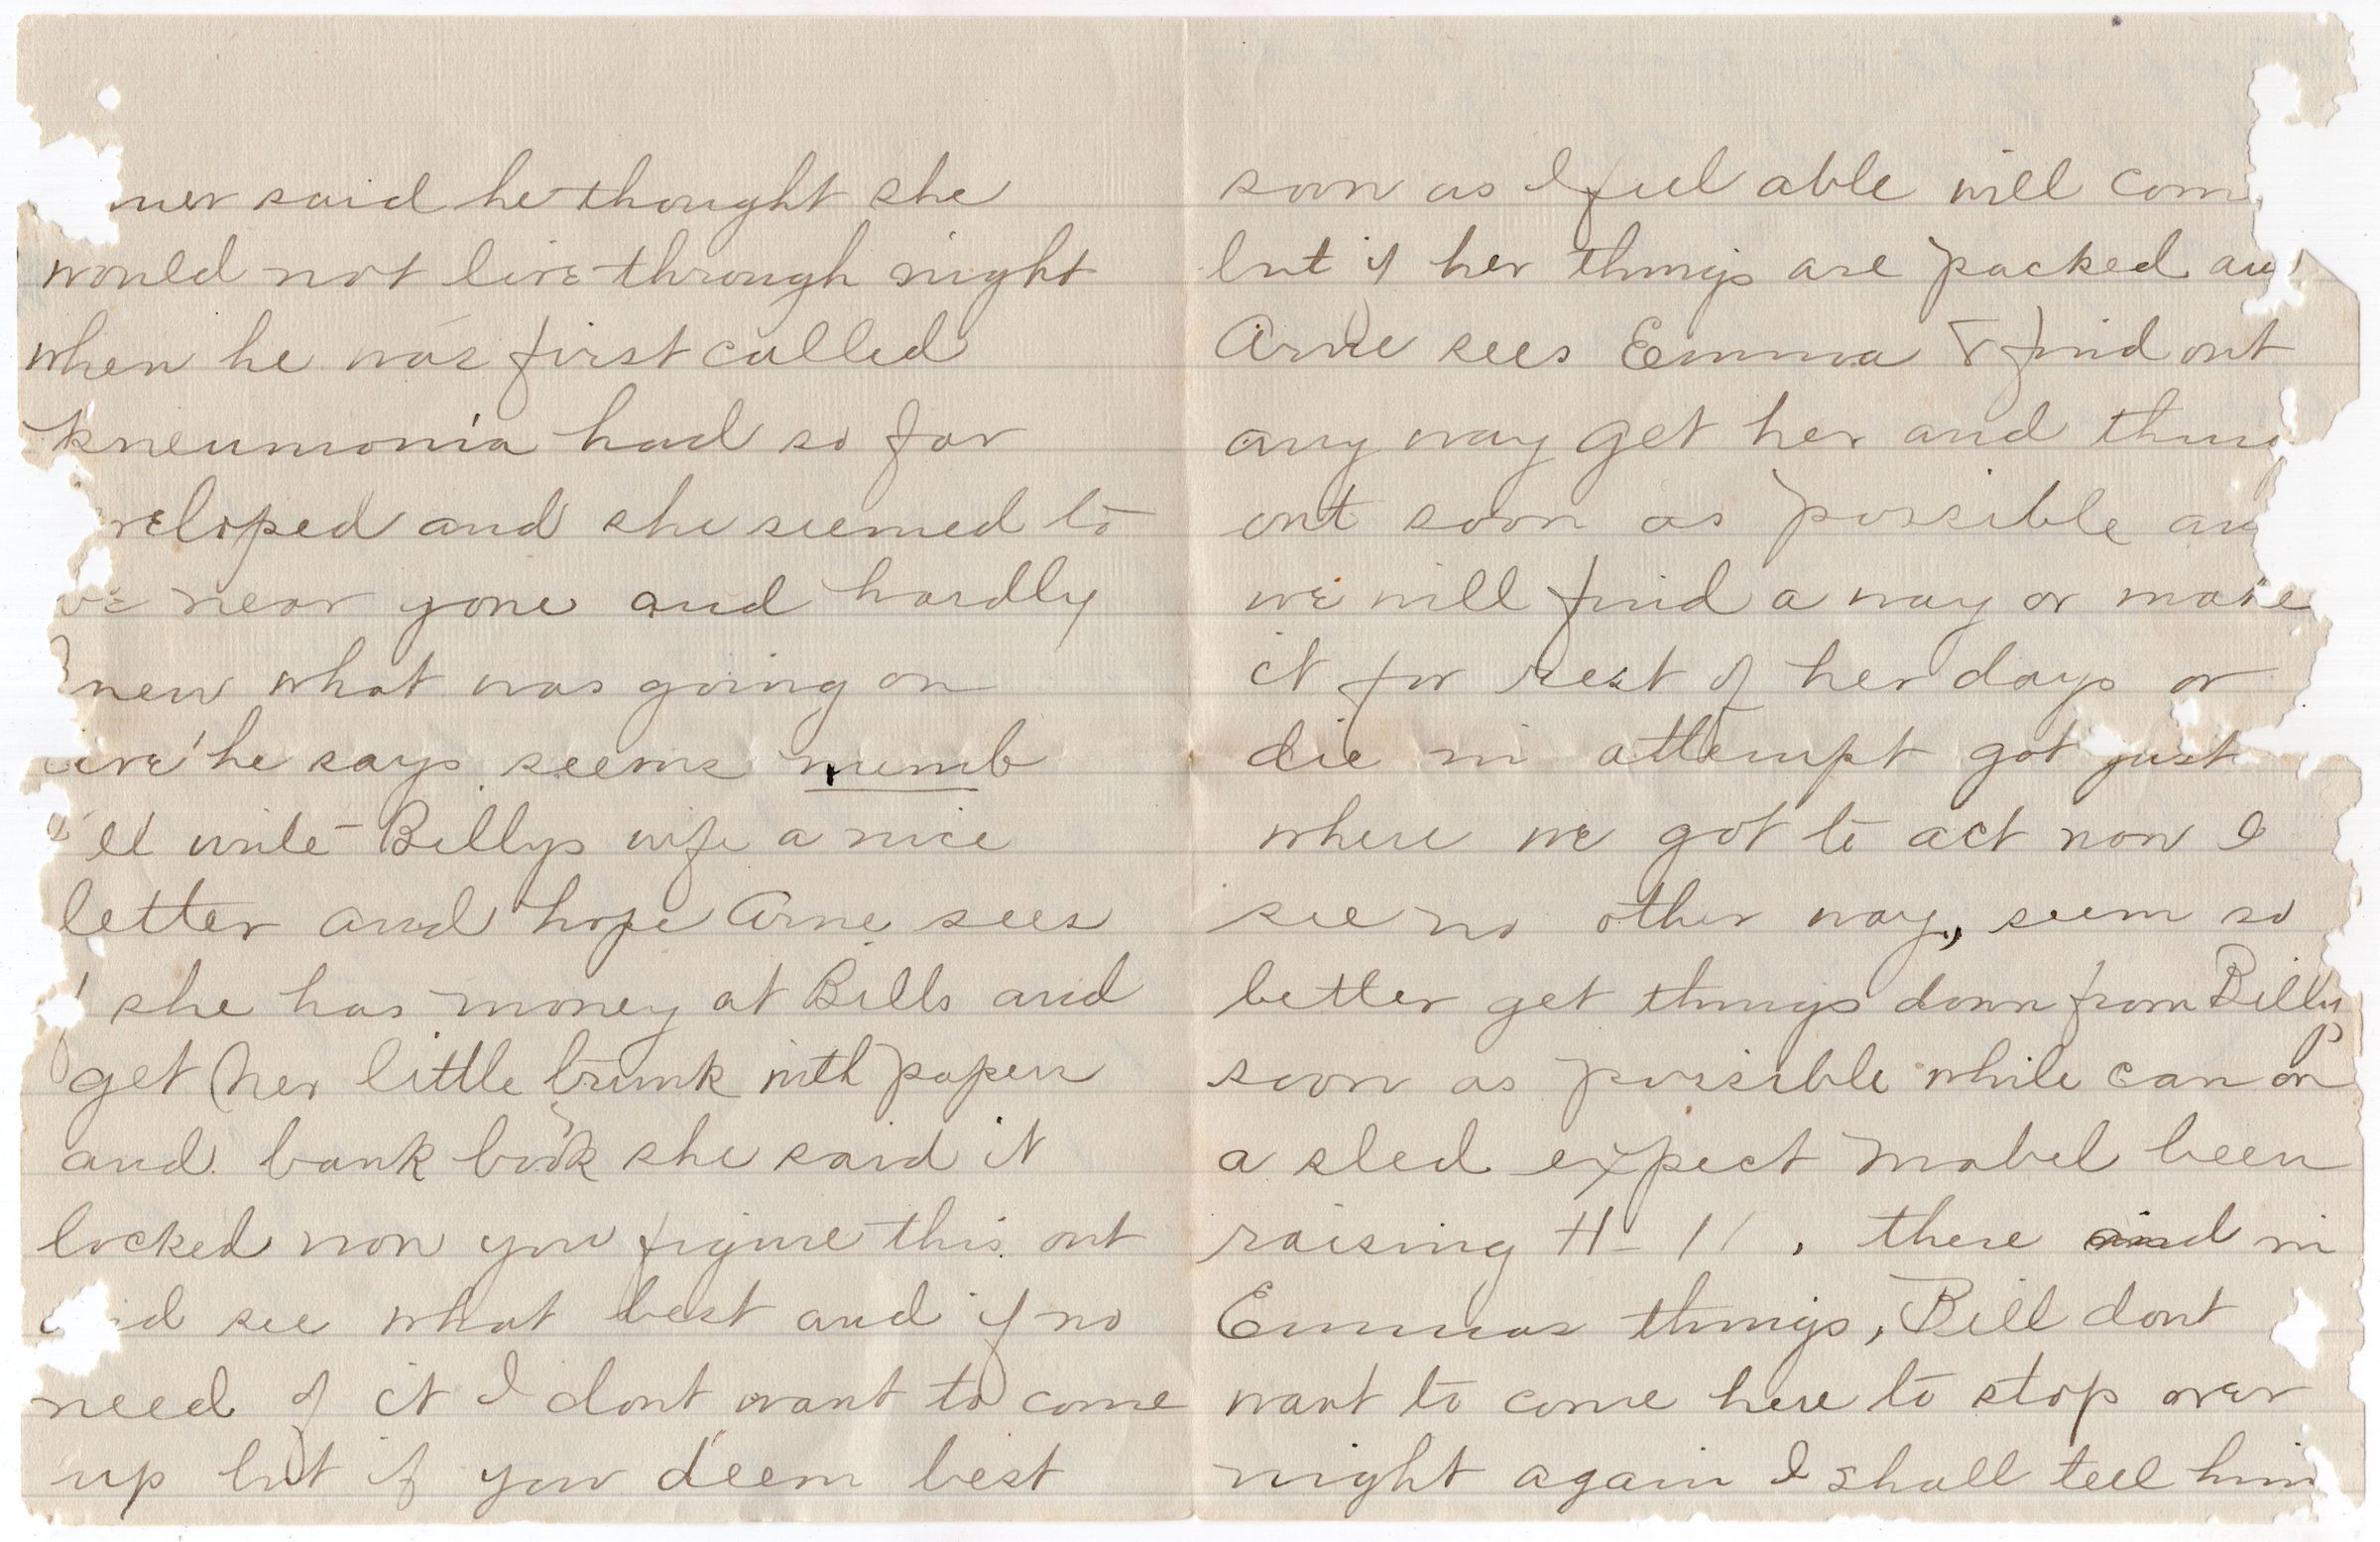 ner said he thought she
would not live through night
when he was first called
kneumonia had so far
veloped and she seemed to
near gone and hardly
new what was going on
he says seems numb
write Billys wife a nice
letter and hope Arne sees
she has money at Bills and
get her little trunk with papers
and bank book she said it
locked now you figure this out
see what best and if no
need of it I dont want to come
up but if you deem best
soon as I feel able will com
but if her things are packed an
Arne sees Emma & find out
any way get her and thin
out soon as possible an
we will find a way or make
it for rest of her days or
die in attempt got just
where we got to act now I
see no other way, seem so
better get things down from Billys
soon as possible while can on
a sled expect Mabel been
raising H-ll. there and in
Emmas things, Bill dont
want to come here to stop over
night again I shall tell him